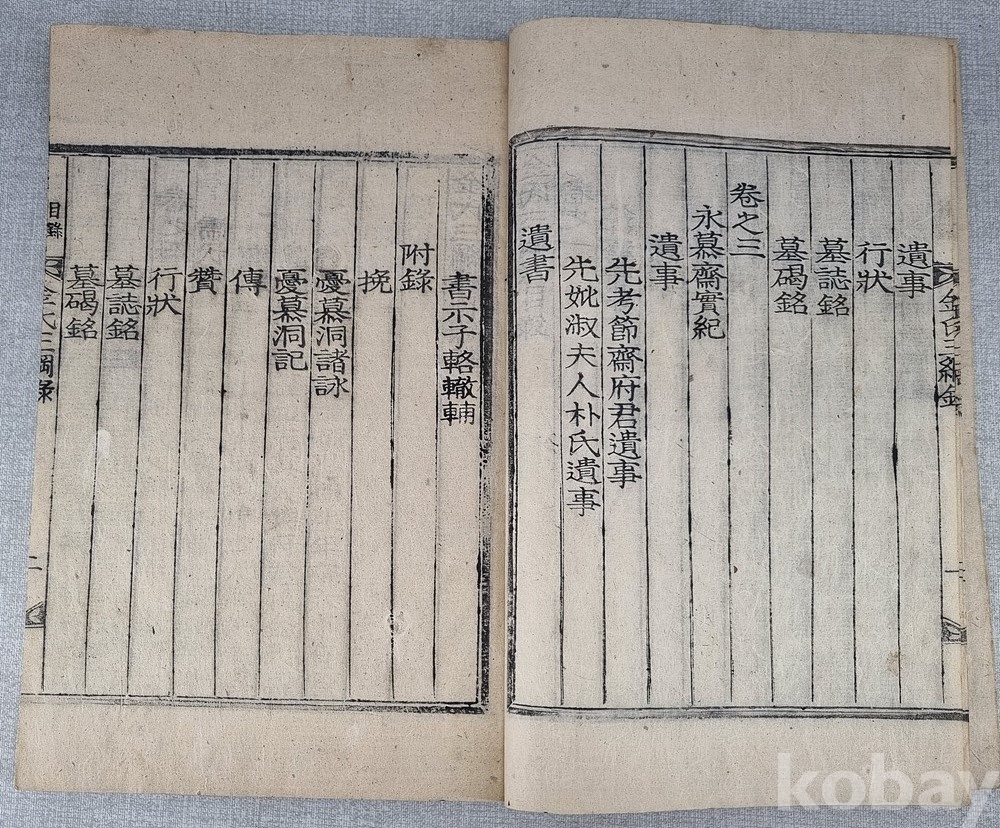 遺事
行狀
墓誌銘
墓碣銘
卷之三
永慕齋實紀
遺事
先考節齋府君遺事
先妣淑夫人朴氏遺事
遺書
書示子輅轍輔
附錄
挽
憂慕洞諸詠
憂慕洞記
傳
贊
行狀
墓誌銘
墓碣銘
目錄
金氏三綱錄
二
kobay